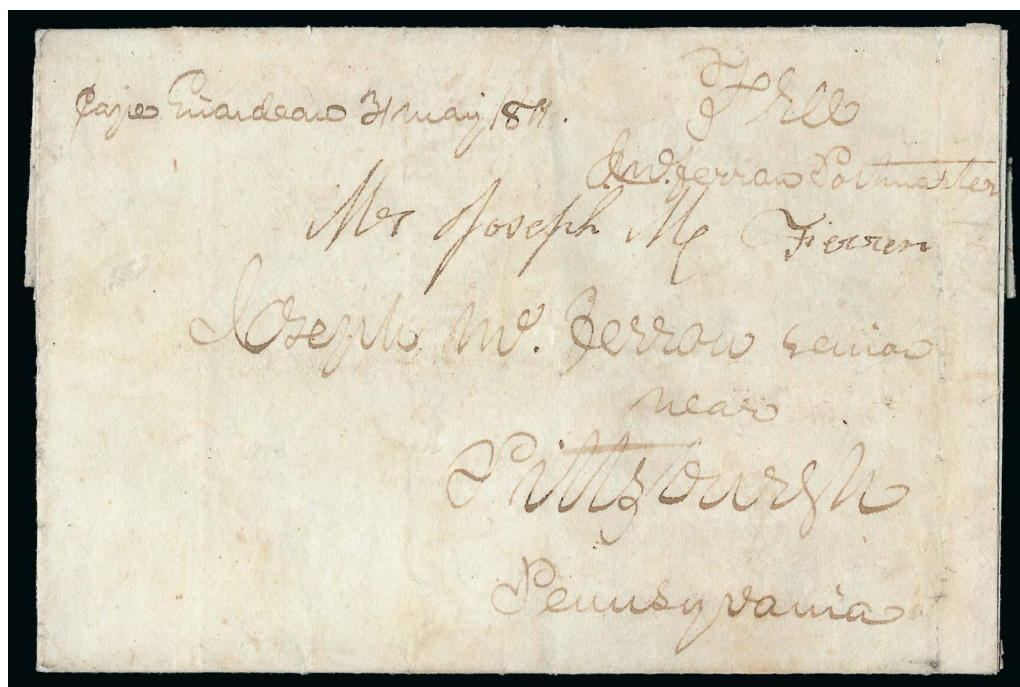 Cape Girardeau 31 May 1811.
Free
J. Mc. Ferran Postmaster
Mr Joseph Mc Ferren
Joseph Mc. Ferron senior
near
Pittsbourgh
Pennsyvania